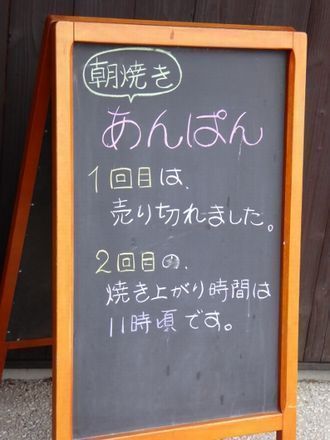 朝焼き
あんぱん
1回目は、
売り切れました。
2回目の、
焼き上がり時間は
11時頃です。